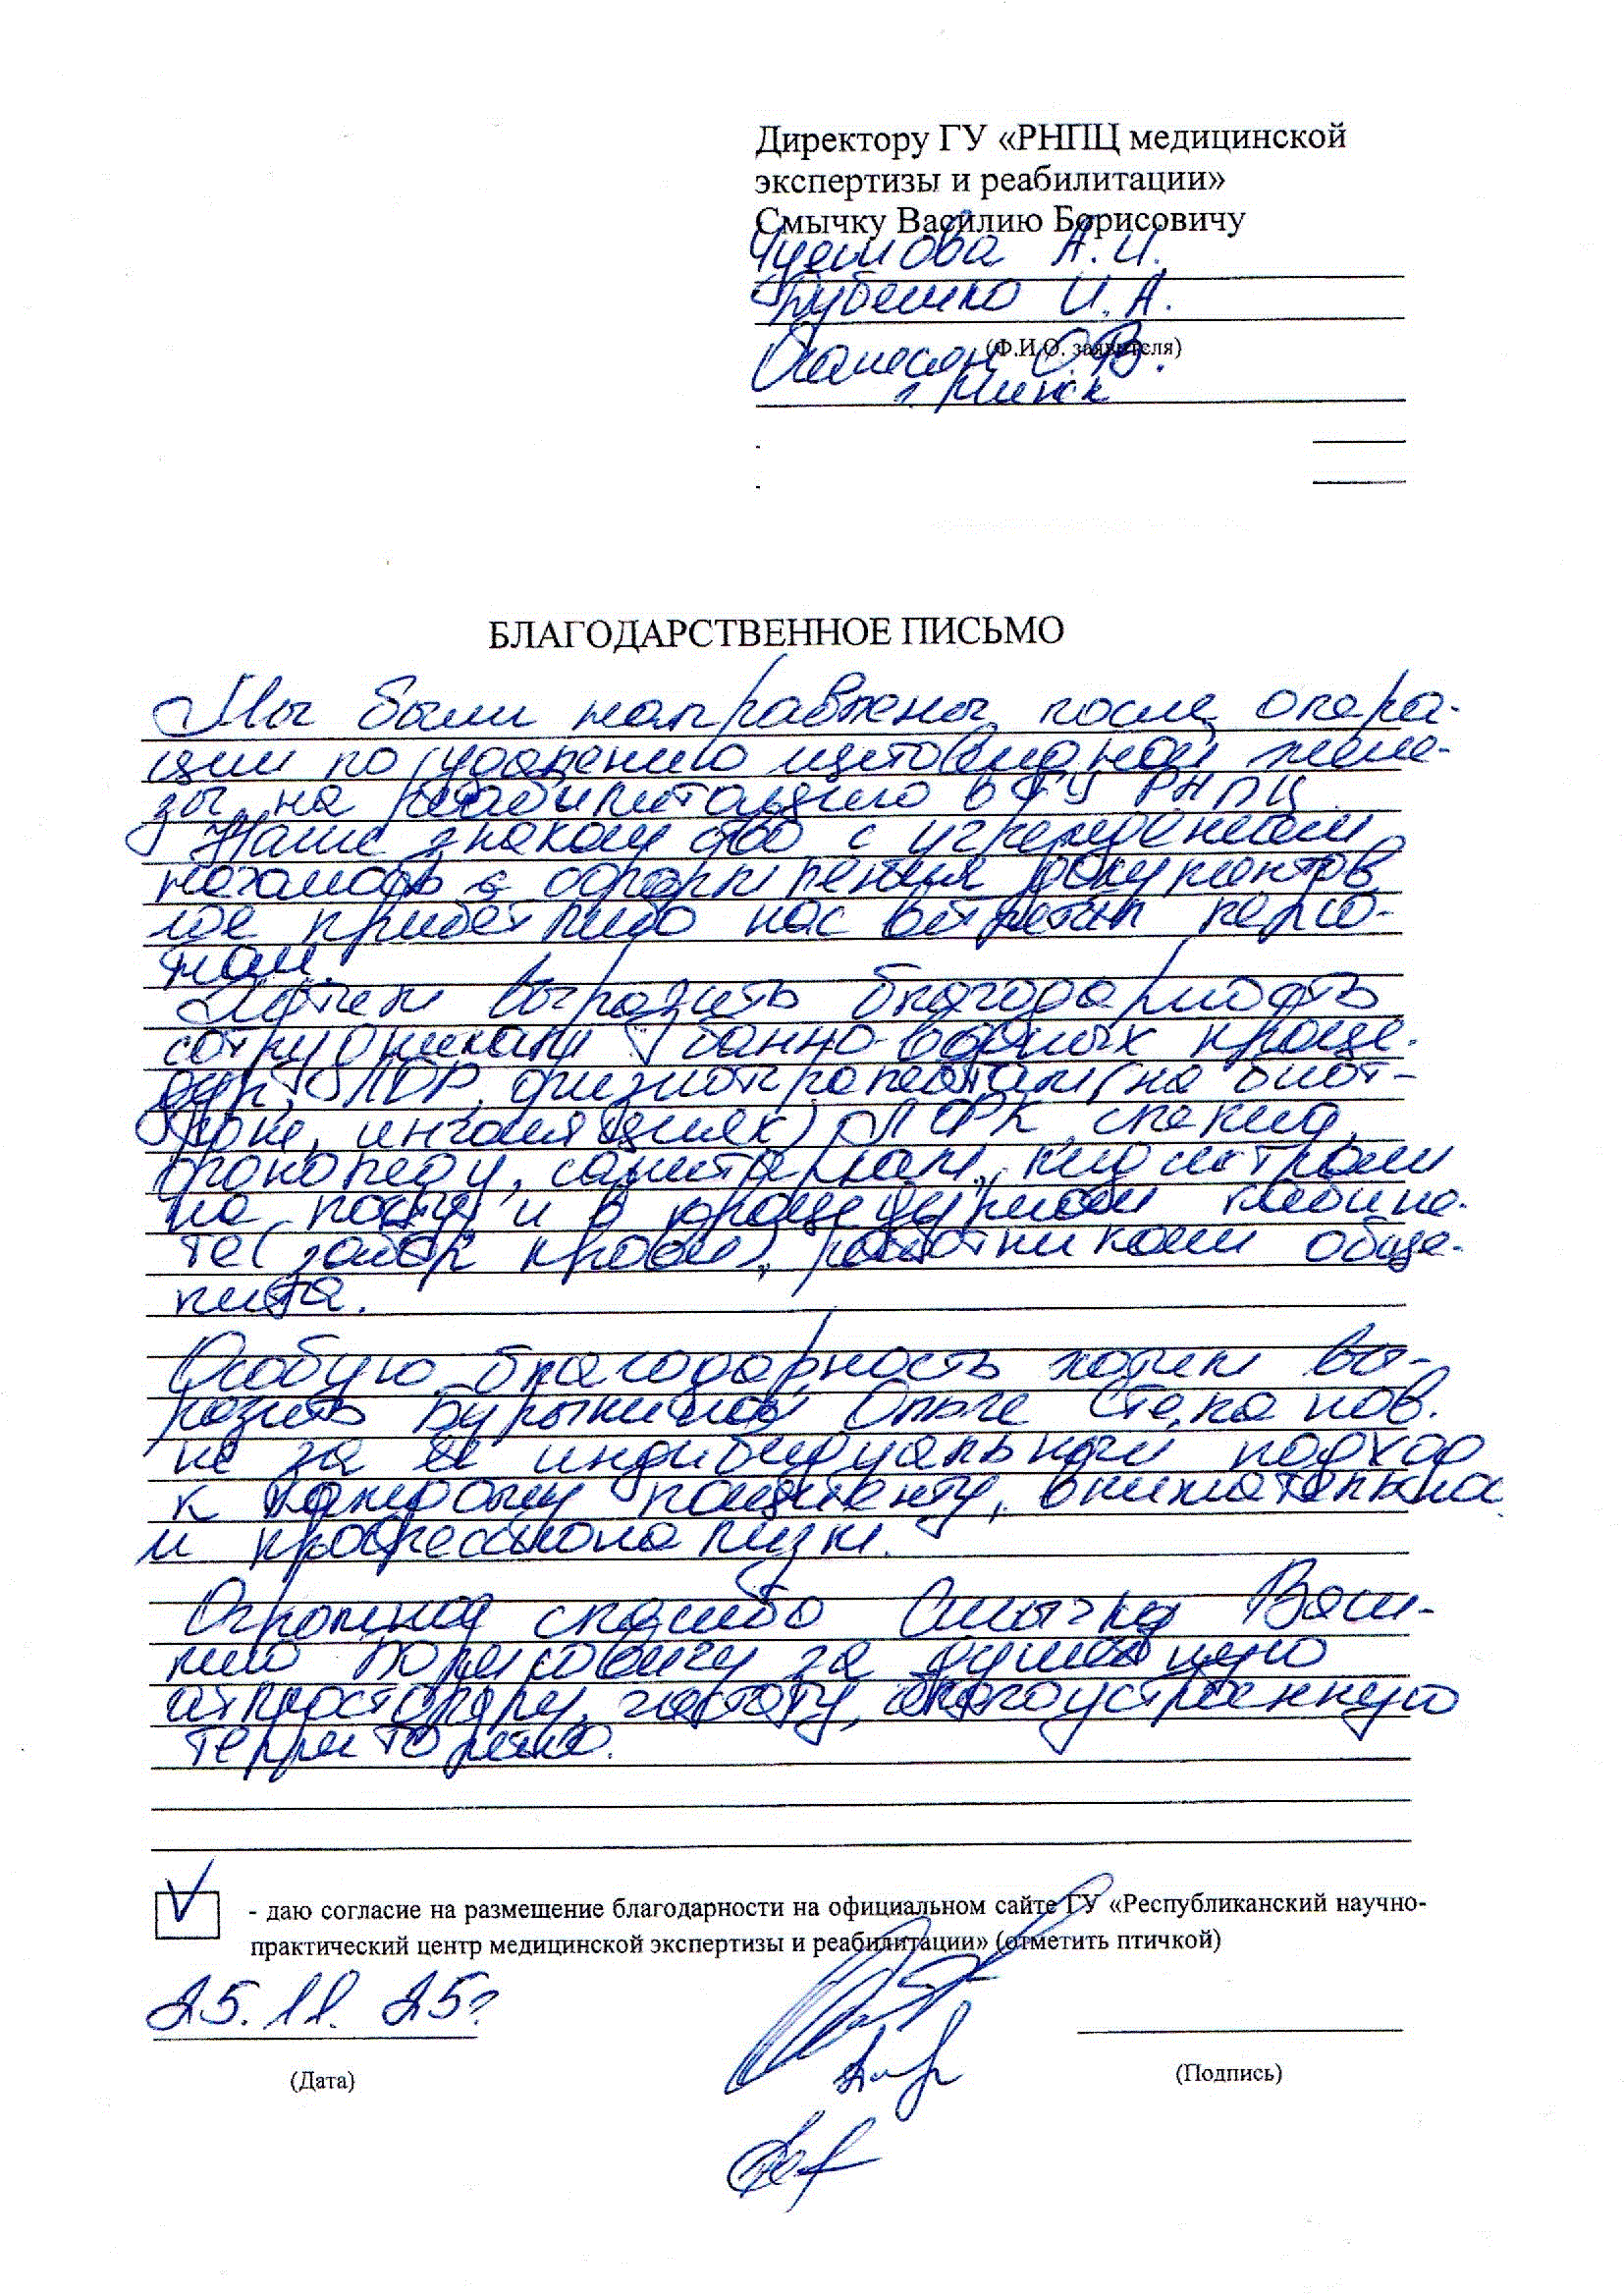 Директору ГУ «РНПЦ медицинской
экспертизы и реабилитации»
Смычку Василию Борисовичу
А.И.
И.А.
(Ф.И.О. заявителя)
О.В.
г. Минск
БЛАГОДАРСТВЕННОЕ ПИСЬМО
Мы были направлены после опера-
ции по удалению щитовидной желе-
зы на реабилитацию в ГУ РНПЦ.
Наше знакомство с учреждением
началось с оформления документов
где приветливо нас встретил персо-
нал.
Хотим выразить благодарность
сотрудникам банно-водных проце-
дур, ЛОР, физиотерапевтам (на биот-
роне, ингаляциях) ЛФК, спелео,
логопеду, санитаркам, медсестрам
на посту и в процедурном кабине-
те (забор крови), работникам обще-
пита.
Особую благодарность хотим вы-
разить Ольге Степанов.
не за её индивидуальный подход
к каждому пациенту, внимательность
и профессионализм.
Огромное спасибо Смычку Васи-
лию Борисовичу за душевную
атмосферу, чистоту, благоустроенную
территорию.
V - даю согласие на размещение благодарности на официальном сайте ГУ «Республиканский научно-
практический центр медицинской экспертизы и реабилитации» (отметить птичкой)
25.11.25г
(Дата)
(Подпись)